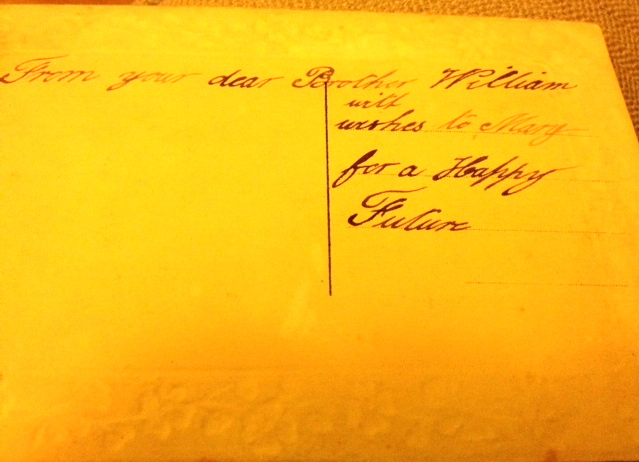 From your dear Brother William
with
wishes to Mary
for a Happy
Future